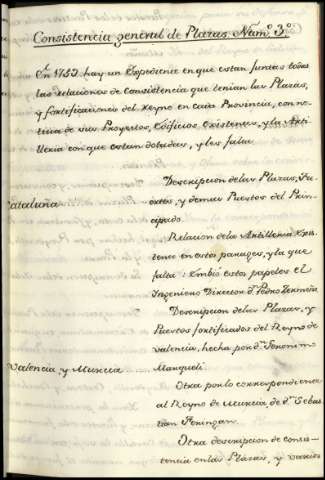 Consistencia general de Plazas. Num.º 3.º
En 1753. hay un Expediente en que estan juntas todas
las relaciones de Consistencia que tenian las Plazas,
y fortificaciones del Reyno en cada Provincia, con no-
ticia de sus Proyectos, Edificios existentes, y la Arti-
lleria con que estan dotadas, y les falta.
Cataluña
Descripcion de las Plazas, Fu-
ertes, y demas Puestos del Prin-
cipado.
Relacion de la Artilleria exis-
tente en estos parages, y la que
falta: embió estos papeles el
Ingeniero Director d.n Pedro Zermeño
Valencia, y Murcia
Descripcion de las Plazas, y
Puestos fortificados del Reyno de
Valencia, hecha por d.n Geronimo
Marqueli.
Otra por lo correspondiente
al Reyno de Murcia de d.n Sebas-
tian Feringan.
Otra descripcion de consis-
tencia en las Plazas, y varios